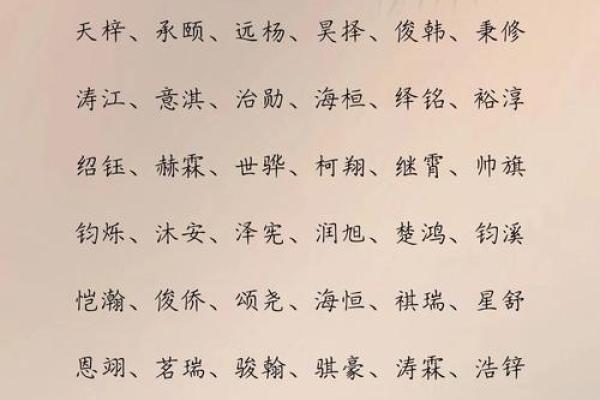 天梓、承颐、远杨、昊择、俊韩、秉修
涛江、意淇、治勋、海桓、绎铭、裕淳
绍钰、赫霖、世骅、柯翔、继霄、帅旗
钧烁、沐安、泽宪、润旭、楚鸿、钧溪
恺瀚、俊侨、颂尧、海恒、祺瑞、星舒
恩翊、茗瑞、骏翰、骐豪、涛霖、浩锌